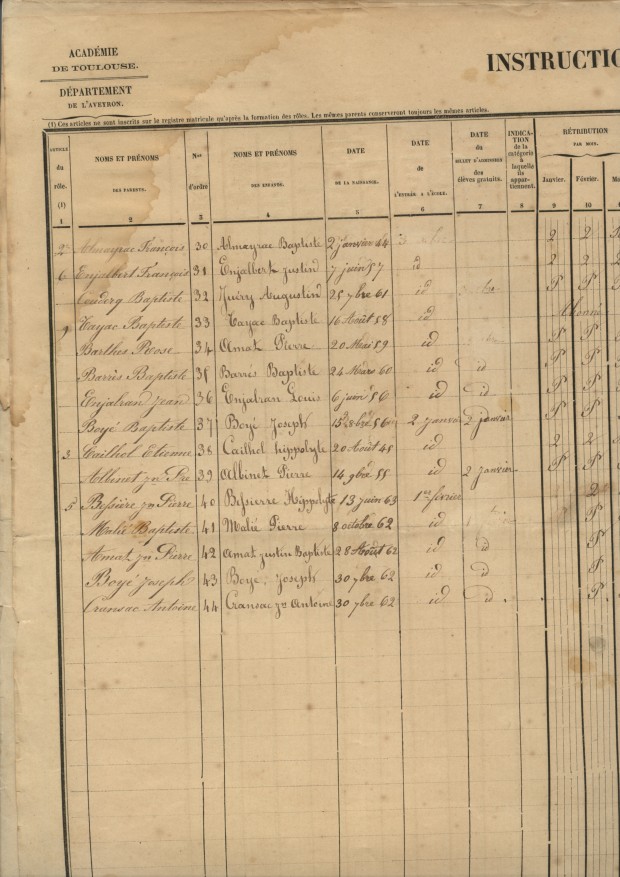 ACADÉMIE
DE TOULOUSE.
DÉPARTEMENT
DE L'AVEYRON.
INSTRUCTIO
(1) Ces articles ne sont inscrits sur le registre matricule qu'après la formation des rôles. Les mêmes parents conserveront toujours les mêmes articles.
ARTICLE du rôle. (1)
NOMS ET PRÉNOMS DES PARENTS.
Nos d'ordre
NOMS ET PRÉNOMS DES ENFANTS.
DATE DE LA NAISSANCE.
DATE de L'ENTRÉE A L'ÉCOLE.
DATE du BILLET D'ADMISSION des élèves gratuits.
INDICATION de la catégorie à laquelle ils appartiennent.
RÉTRIBUTION PAR MOIS.
Janvier. Février.
1 2 3 4 5 6 7 8 9 10
Almayrac François 30 Almayrac Baptiste 2 janvier 2 2
6 Enjalbert François 31 Enjalbert justin 7 juin 57 id 2 2
Couderq Baptiste 32 Augustin 25 7bre 61 id P P
9 Cayac Baptiste 33 Cayac Baptiste 16 Août 58 id
Barthes Rose 34 Amat Pierre 20 Mai 59 id P P
Barrès Baptiste 35 Barrès Baptiste 24 Mars 60 id id P P
Enjalran Jean 36 Enjalran Louis 6 juin 56 id id P P
Boyé Baptiste 37 Boyé Joseph 2 janvier 2 janvier P P
3 Cailhol Etienne 38 Cailhol hippolyte 20 Août 48 id 2 2
Albinet jne Pre 39 Albinet Pierre 14 9bre 55 id 2 janvier P P
5 Bessière jne Pierre 40 Bessierre Hippolyte 13 juin 63 1er février 2
Malié Baptiste 41 Malié Pierre 8 octobre 62 id P
Amat jne Pierre 42 Amat justin Baptiste 28 Août 62 id id P
Boyé Joseph 43 Boyé Joseph 30 7bre 62 id id P
Cransac Antoine 44 Cransac jne Antoine 30 7bre 62 id id P